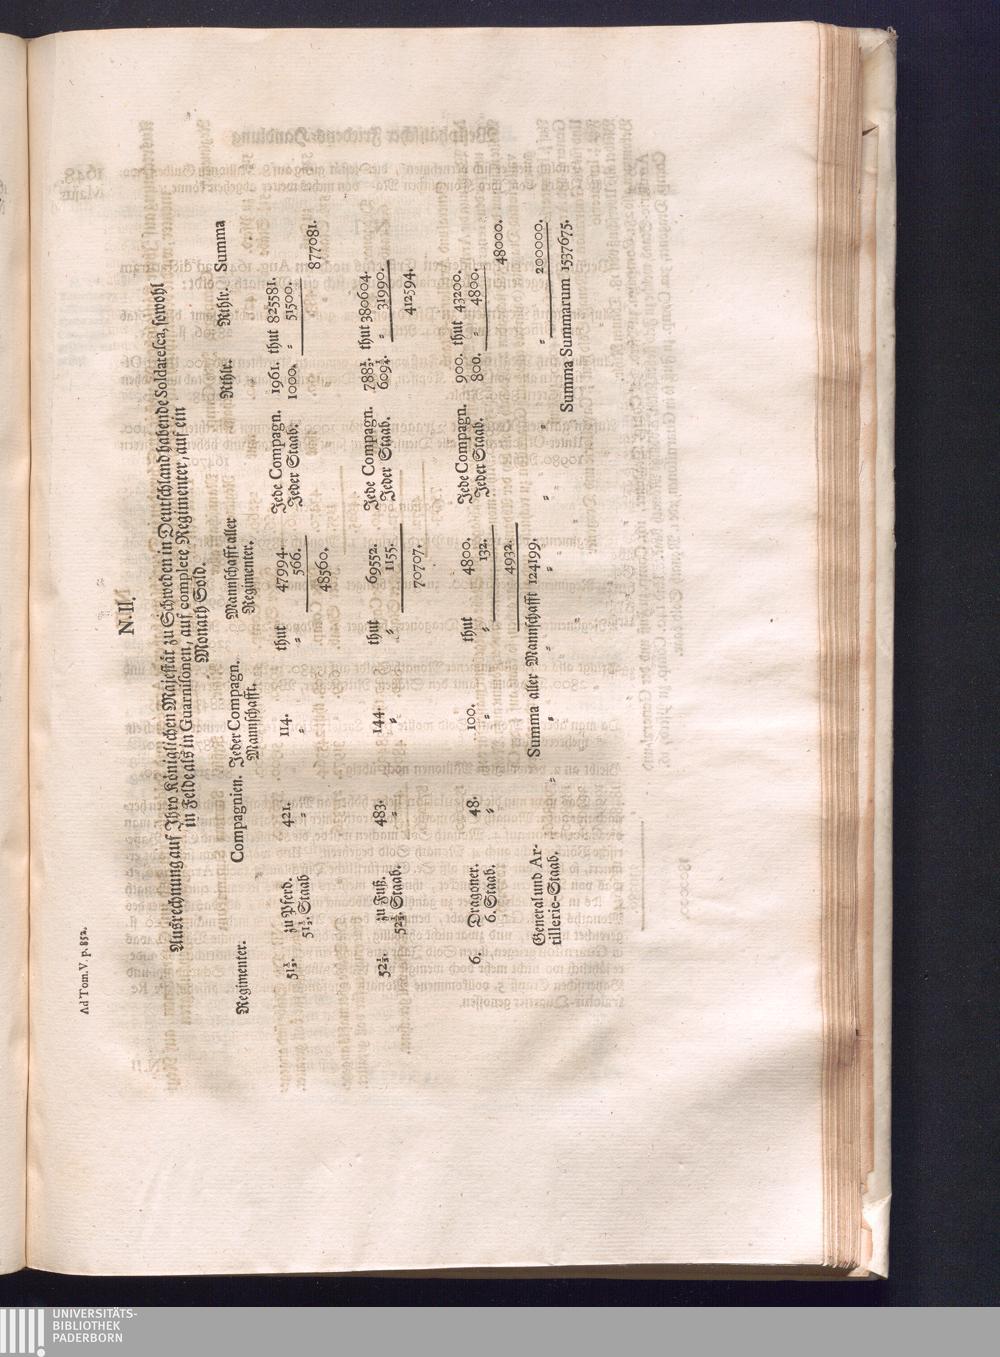 Ad Tom. V. p. 852.
N. II.
Ausrechnung auf Ihro Königlichen Majestät zu Schweden in Deutschland habende Soldatesca, sowohl
in Felde als in Guarnisonen, auf complete Regimenter, auf ein
Monath Sold.
Regimenter. Compagnien. Jeder Compagn. Mannschafft aller Rthlr. Rthlr. Summa
Mannschafft. Regimenter.
51½. zu Pferd. 421. 114. thut 47994. Jede Compagn. 1961. thut 825581.
51½. Staab " " " 566. Jeder Staab. 1000. " 51500.
48560. 877081.
52½. zu Fuß. 483. 144. thut 69552. Jede Compagn. 788½. thut 380604.
52½. Staab. " " " 1155. Jeder Staab. 609¼. " 31990.
70707. 412594.
6. Dragoner. 48. 100. thut 4800. Jede Compagn. 900. thut 43200.
6. Staab. " " " 132. Jeder Staab. 800. " 4800.
4932. 48000.
Summa aller Mannschafft 124199.
General und Ar-
tillerie-Staab. " " " " " " " " 200000.
Summa Summarum 1537675.
UNIVERSITÄTS-
BIBLIOTHEK
PADERBORN